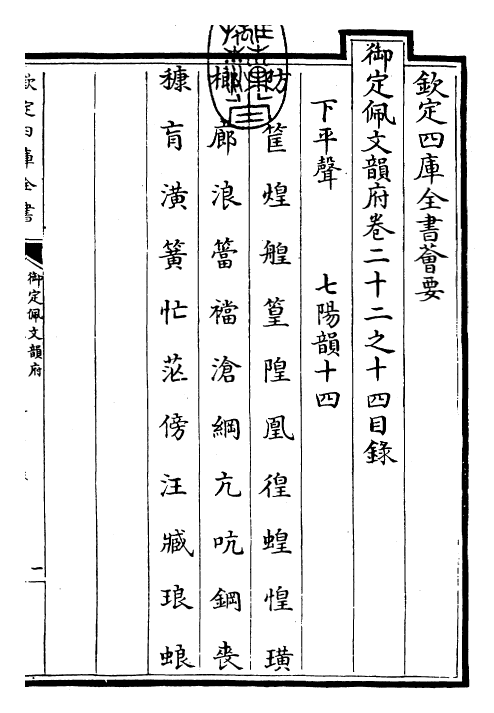 欽定四庫全書薈要
御定佩文韻府卷二十二之十四目錄
下平聲 七陽韻十四
防筐煌艎篁隍凰徨蝗惶璜
榔廊浪簹襠滄綱亢吭鋼喪
穅肓潢簧忙茫傍汪臧琅蜋
欽定四庫全書
御定佩文韻府
一